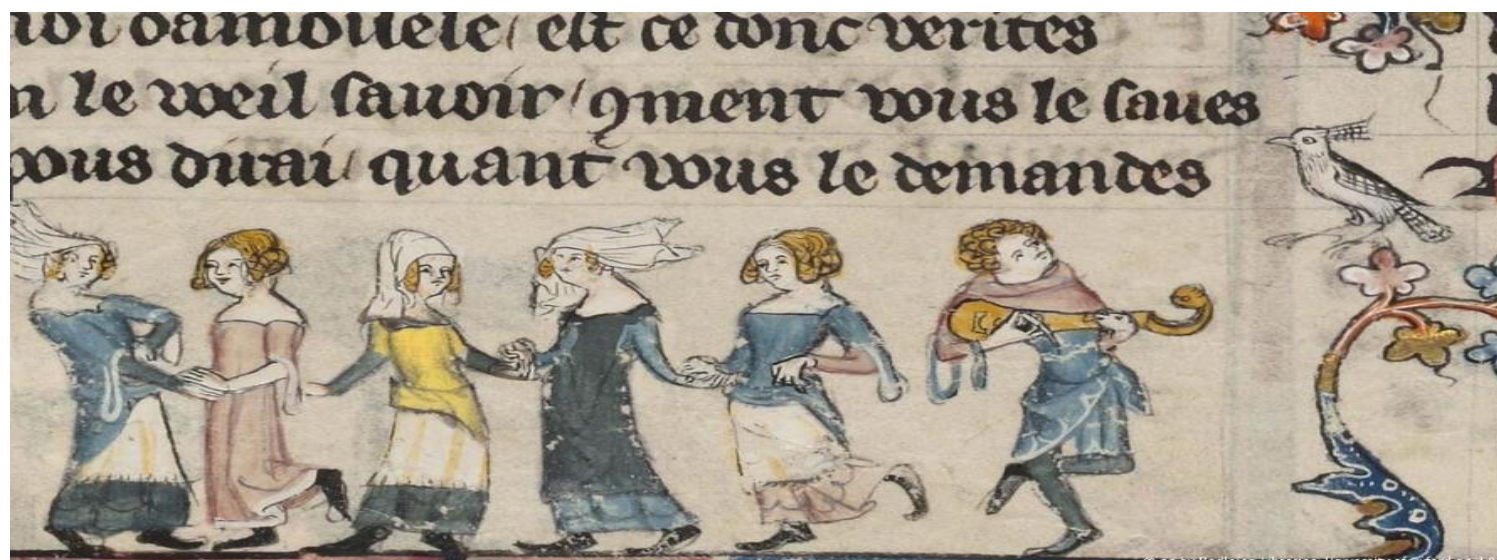 damoiſele / eſt ce donc verites
le weil ſauoir / ꝯment vous le ſaues
vous dirai / quant vous le demandes